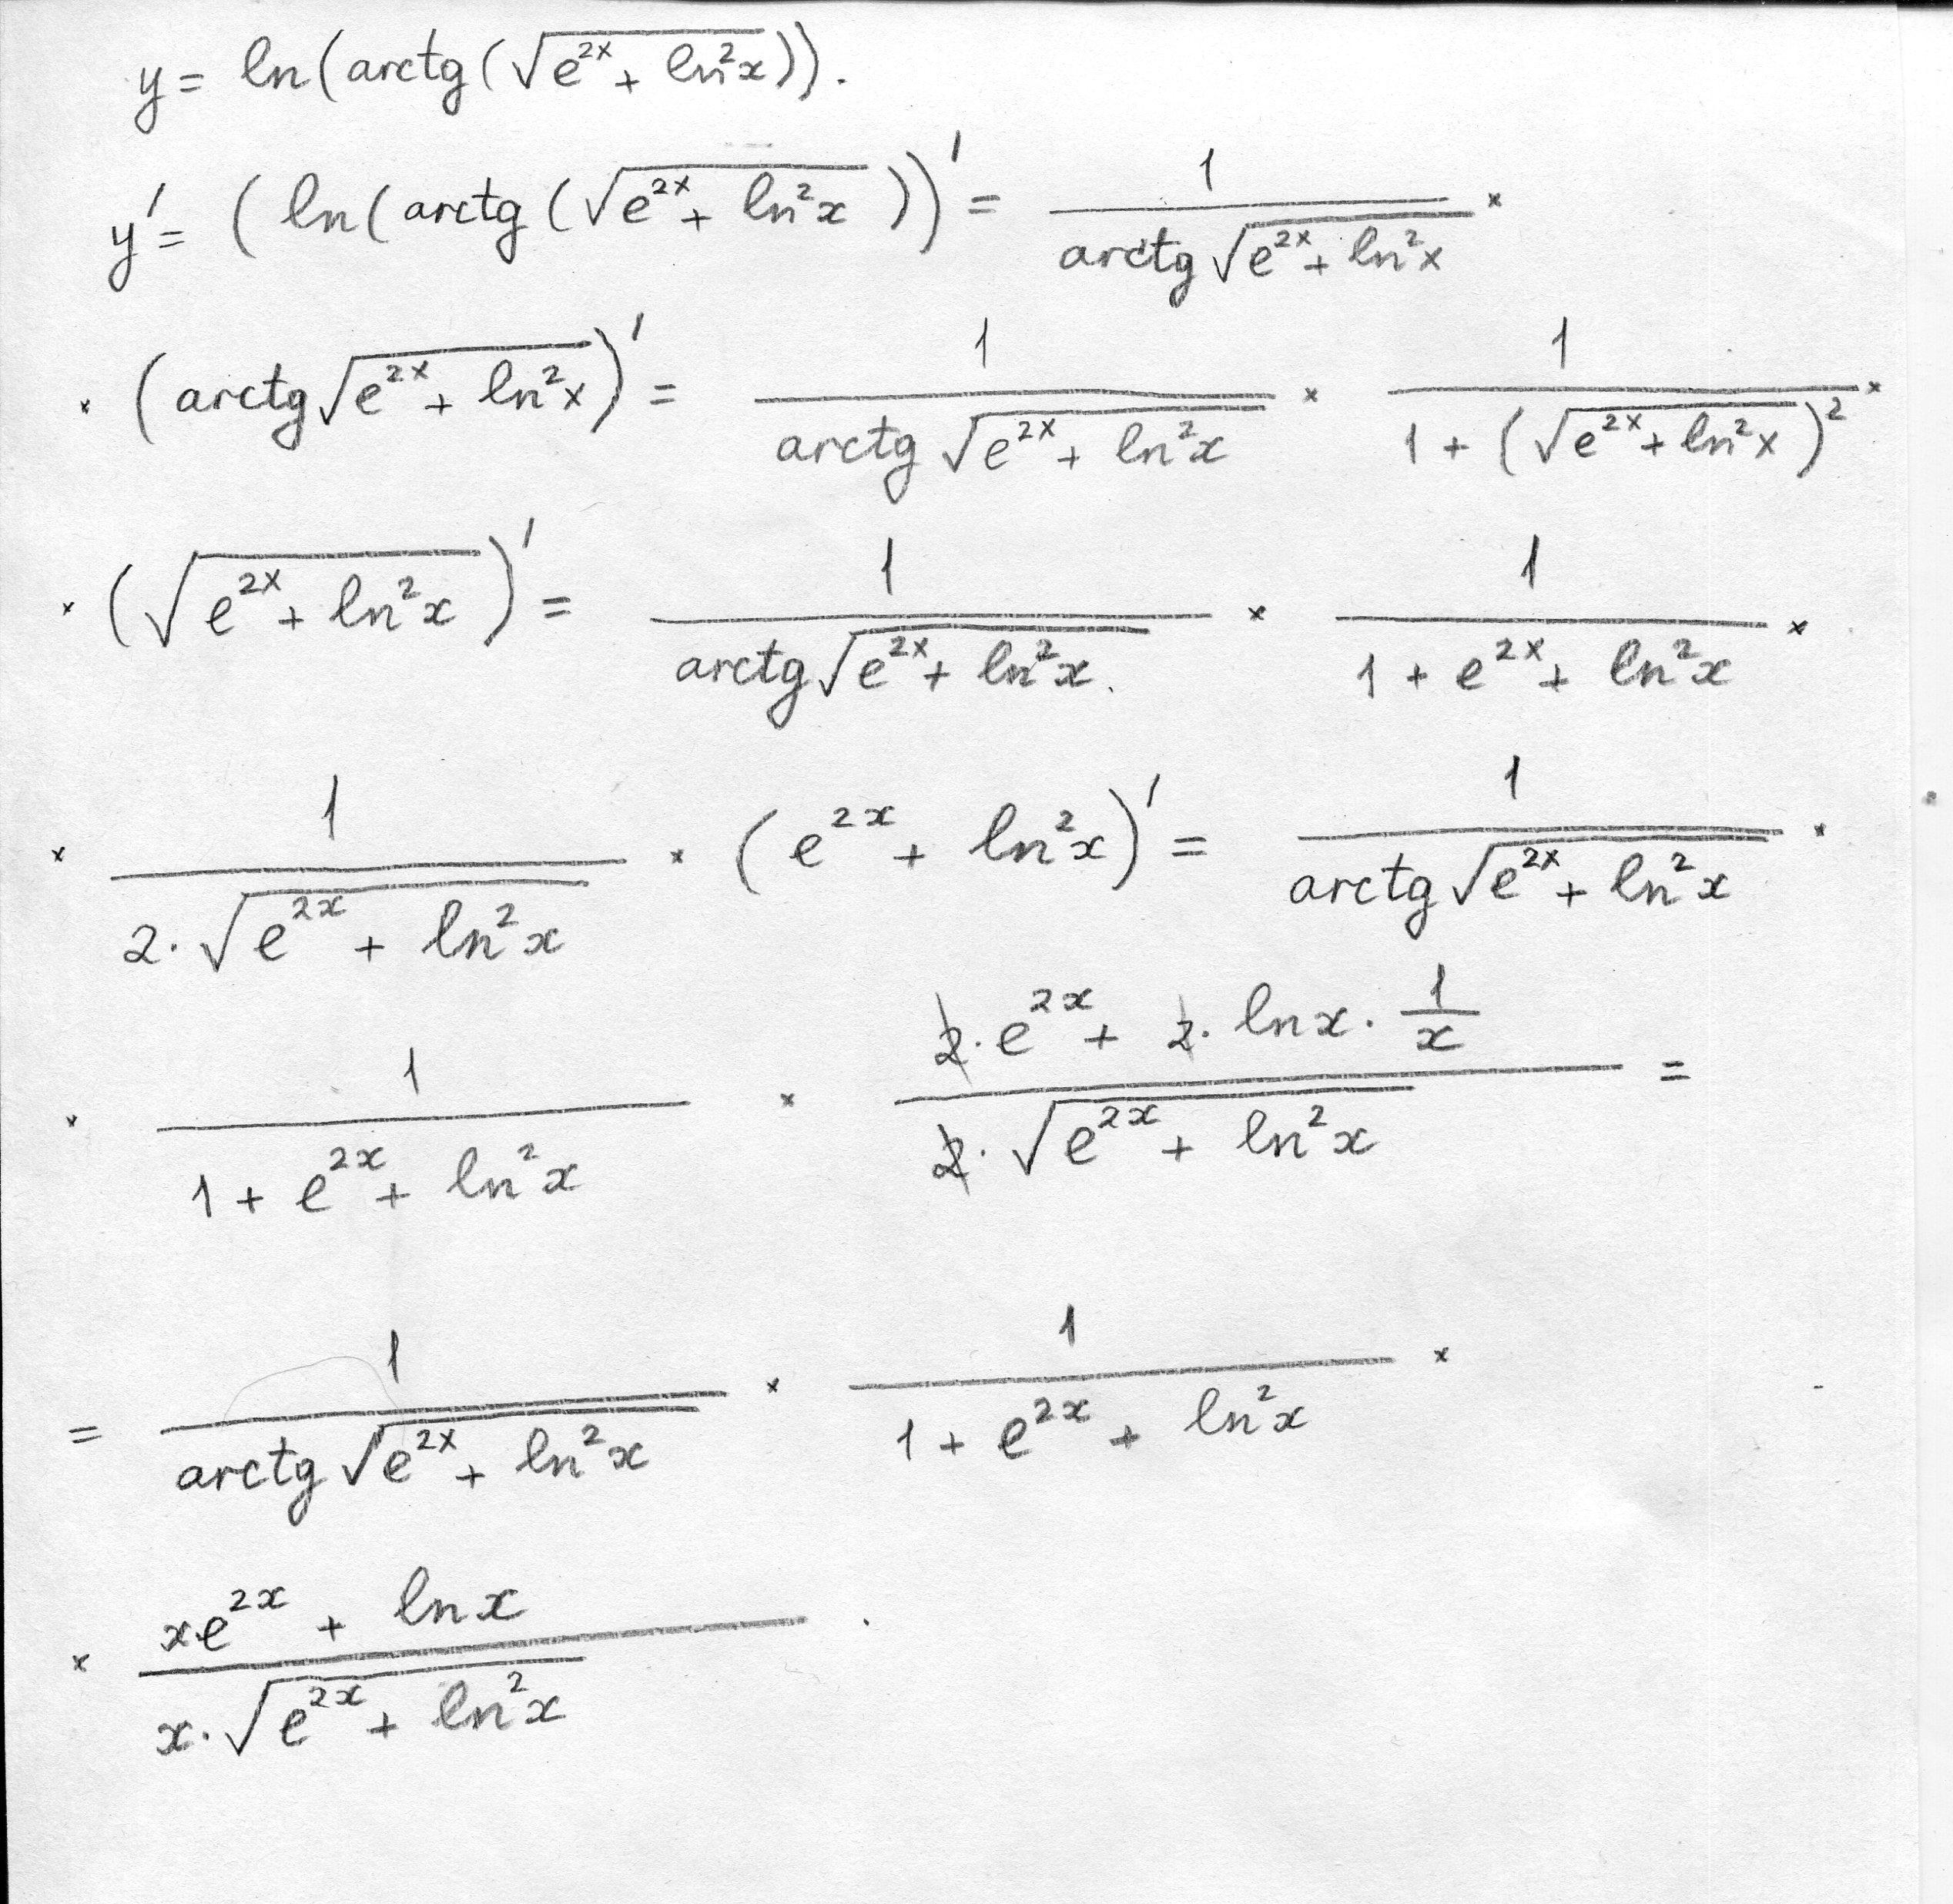 y = ln(arctg(√(e^{2x} + ln²x))).
y' = (ln(arctg(√(e^{2x} + ln²x)))' = 1/(arctg√(e^{2x} + ln²x)) ×
× (arctg√(e^{2x} + ln²x))' = 1/(arctg√(e^{2x} + ln²x)) × 1/(1 + (√(e^{2x} + ln²x))²) ×
× (√(e^{2x} + ln²x))' = 1/(arctg√(e^{2x} + ln²x)) × 1/(1 + e^{2x} + ln²x) ×
× 1/(2·√(e^{2x} + ln²x)) × (e^{2x} + ln²x)' = 1/(arctg√(e^{2x} + ln²x)) ×
× 1/(1 + e^{2x} + ln²x) × (2·e^{2x} + 2·lnx·1/x)/(2·√(e^{2x} + ln²x)) =
= 1/(arctg√(e^{2x} + ln²x)) × 1/(1 + e^{2x} + ln²x) ×
× (x·e^{2x} + lnx)/(x·√(e^{2x} + ln²x)).